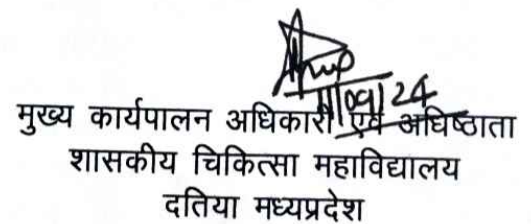 11/09/24
मुख्य कार्यपालन अधिकारी एवं अधिष्ठाता
शासकीय चिकित्सा महाविद्यालय
दतिया मध्यप्रदेश